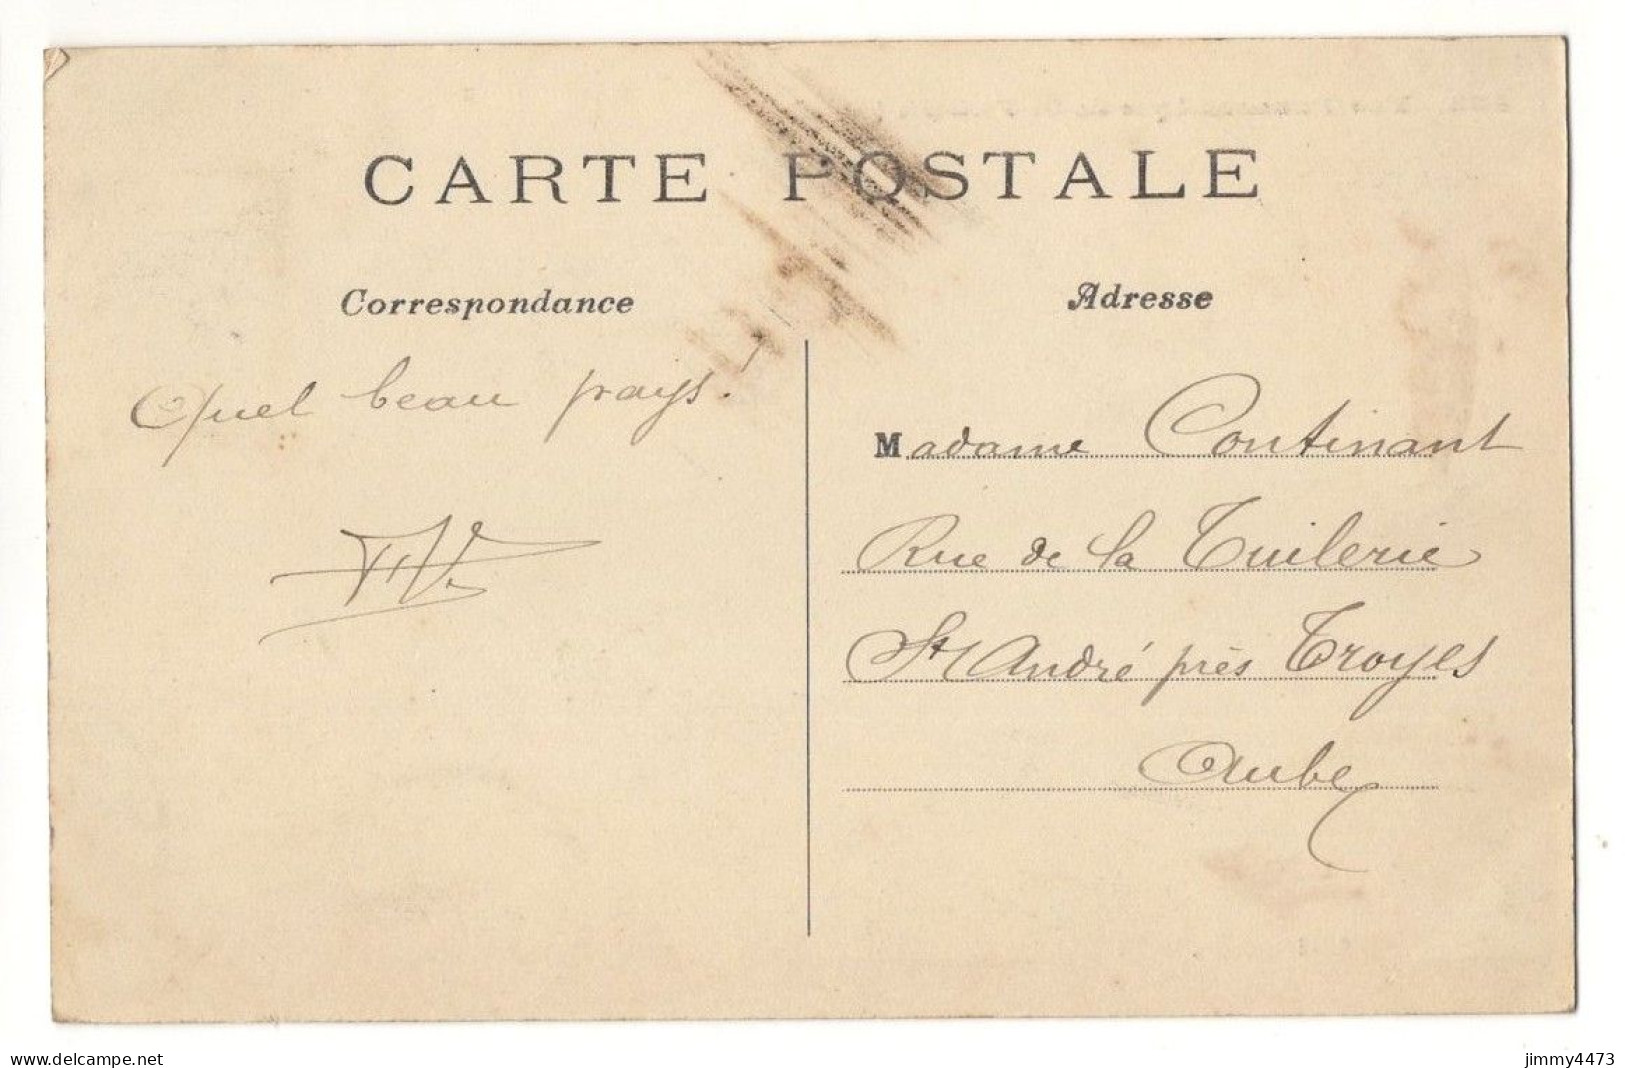 CARTE POSTALE
Correspondance
Adresse
Quel beau pays!
Madame Continant
Rue de la Tuilerie
St André près Troyes
Aube
www.delcampe.net
jimmy4473